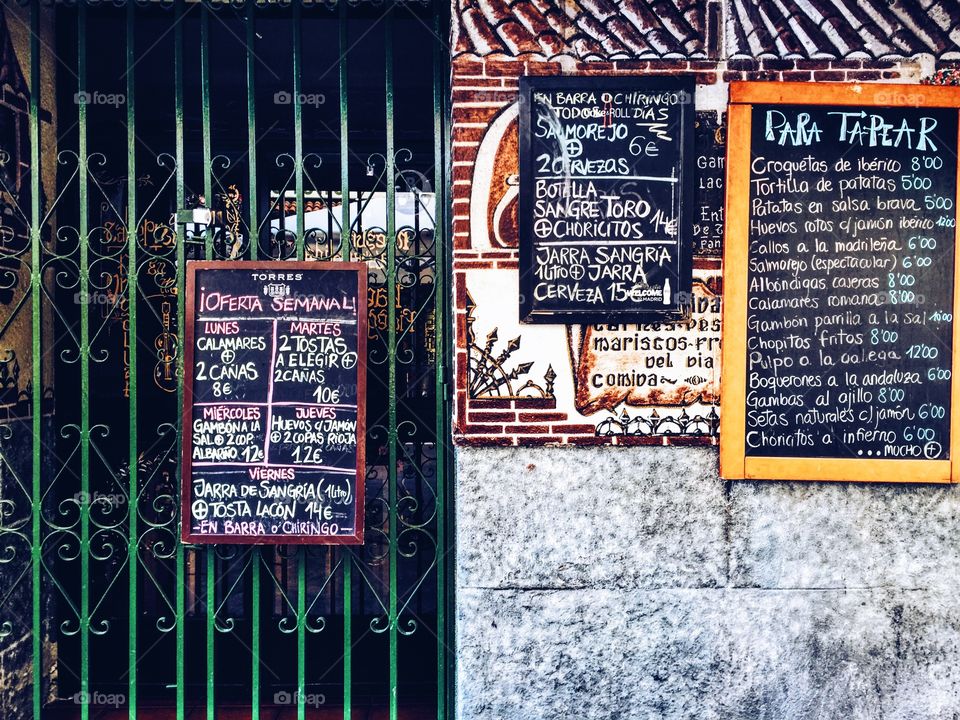 TORRES
¡OFERTA SEMANAL!
LUNES
CALAMARES
+
2 CAÑAS
8€
MARTES
2 TOSTAS
A ELEGIR +
2 CAÑAS
10€
MIÉRCOLES
GAMBÓN A LA
SAL + 2 COP.
ALBARIÑO 12€
JUEVES
HUEVOS C/JAMÓN
+ 2 COPAS RIOJA
CAÑAS
12€
VIERNES
JARRA DE SANGRÍA (1 litro)
+ TOSTA LACÓN 14€
-EN BARRA O CHIRINGO-
EN BARRA O CHIRINGO
TODOS LOS DÍAS
SALMOREJO
+
2 CERVEZAS
6€
BOTELLA
SANGRE TORO
+ CHORICITOS 14€
JARRA SANGRÍA
1 litro + JARRA
CERVEZA 15
WELCOME
MADRID
GAM
LAC
ENT
PAN
mariscos-
DEL DIA
comida
PARA TAPEAR
CROQUETAS DE IBÉRICO 8'00
TORTILLA DE PATATAS 5'00
PATATAS EN SALSA BRAVA 5'00
HUEVOS ROTOS C/JAMÓN IBÉRICO 12'00
CALLOS A LA MADRILEÑA 6'00
SALMOREJO (ESPECTACULAR) 6'00
ALBÓNDIGAS CASERAS 8'00
CALAMARES ROMANA 8'00
GAMBÓN PARRILLA A LA SAL 10'00
CHOPITOS FRITOS 8'00
PULPO A LA GALLEGA 12'00
BOQUERONES A LA ANDALUZA 6'00
GAMBAS AL AJILLO 8'00
SETAS NATURALES C/JAMÓN 6'00
CHORICITOS A INFIERNO 6'00
...MUCHO +